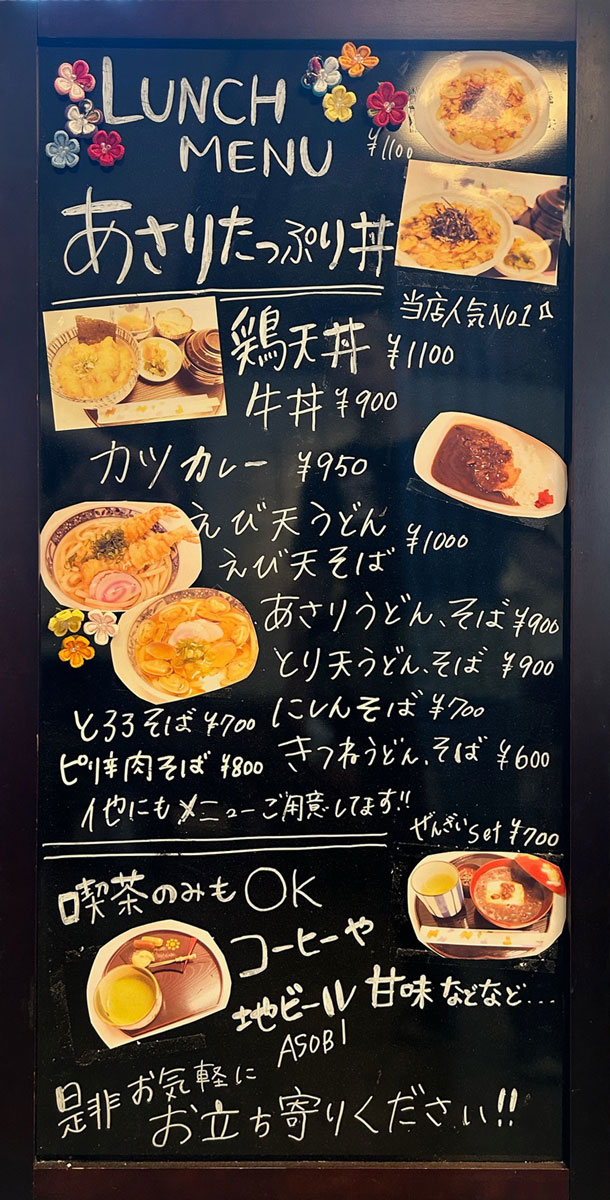 LUNCH
MENU
¥1100
あさりたっぷり丼
当店人気No1
鶏天丼 ¥1100
牛丼 ¥900
カツカレー ¥950
えび天うどん
えび天そば ¥1000
あさりうどん、そば ¥900
とり天うどん、そば ¥900
とろろそば ¥700 にしんそば ¥700
ピリ辛肉そば ¥800 きつねうどん、そば ¥600
他にもメニューご用意してます!!
ぜんざいset ¥700
喫茶のみもOK
コーヒーや
地ビール 甘味などなど...
ASOBI
是非お気軽に
お立ち寄りください!!